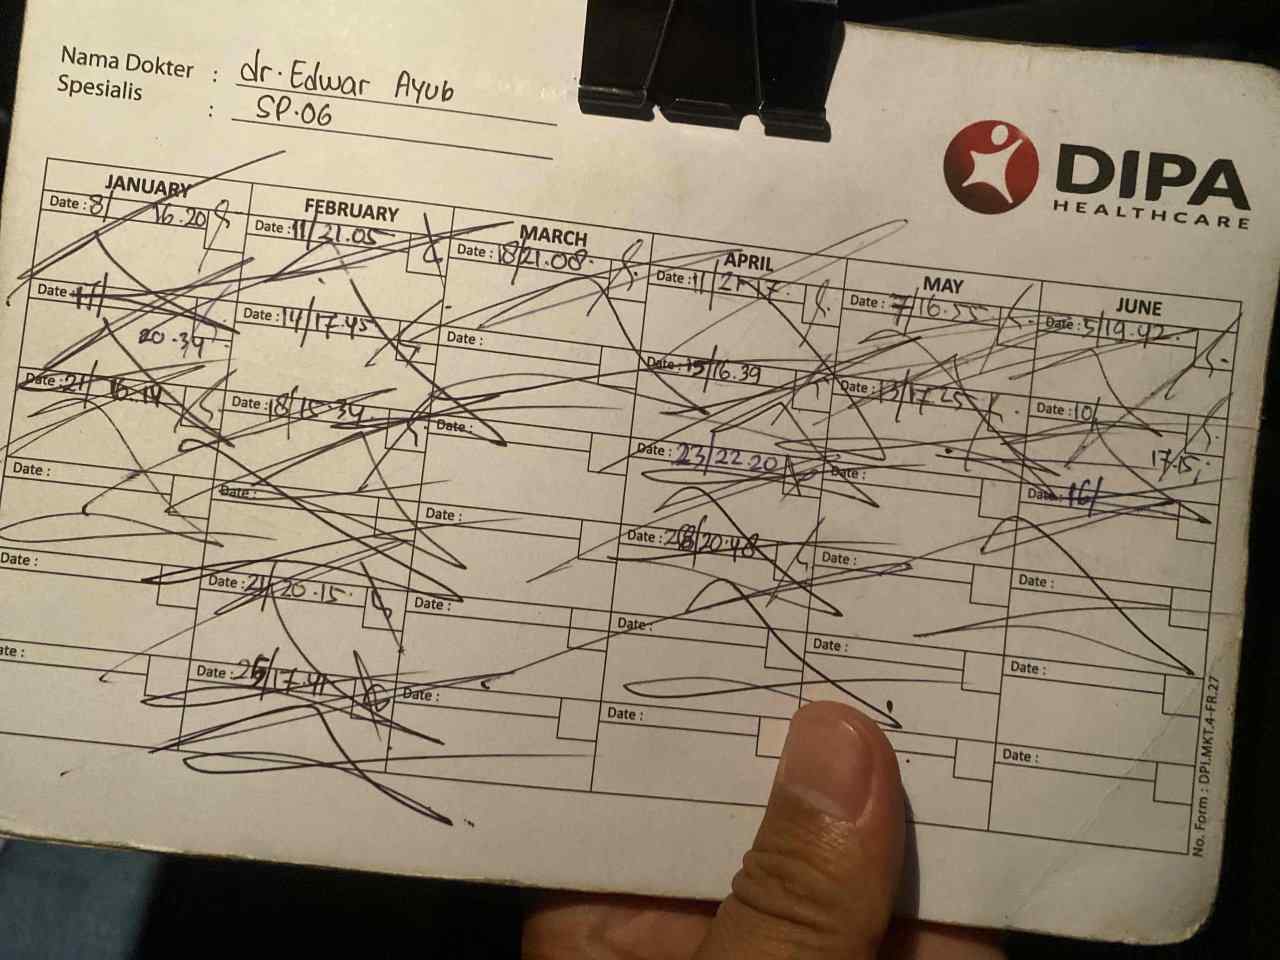 Nama Dokter : dr. Edwar Ayub
Spesialis : SP.OG
DIPA
HEALTHCARE
JANUARY
Date : 8/ 16.20
Date : 17/
20.34
Date : 21/ 16.14
Date :
Date :
Date :
FEBRUARY
Date : 11/21.05
Date : 14/17.45
Date : 18/15.34
Date :
Date : 21/20.15
Date : 25/17.41
MARCH
Date : 18/21.08
Date :
Date :
Date :
Date :
Date :
APRIL
Date : 11/21.17
Date : 15/16.39
Date : 23/22.20
Date : 28/20.48
Date :
Date :
MAY
Date : 7/16.55
Date : 13/17.25
Date :
Date :
Date :
JUNE
Date : 5/19.42
Date : 10/
17.15
Date : 16/
Date :
Date :
Date :
No. Form : DPI.MKT.4-FR.27